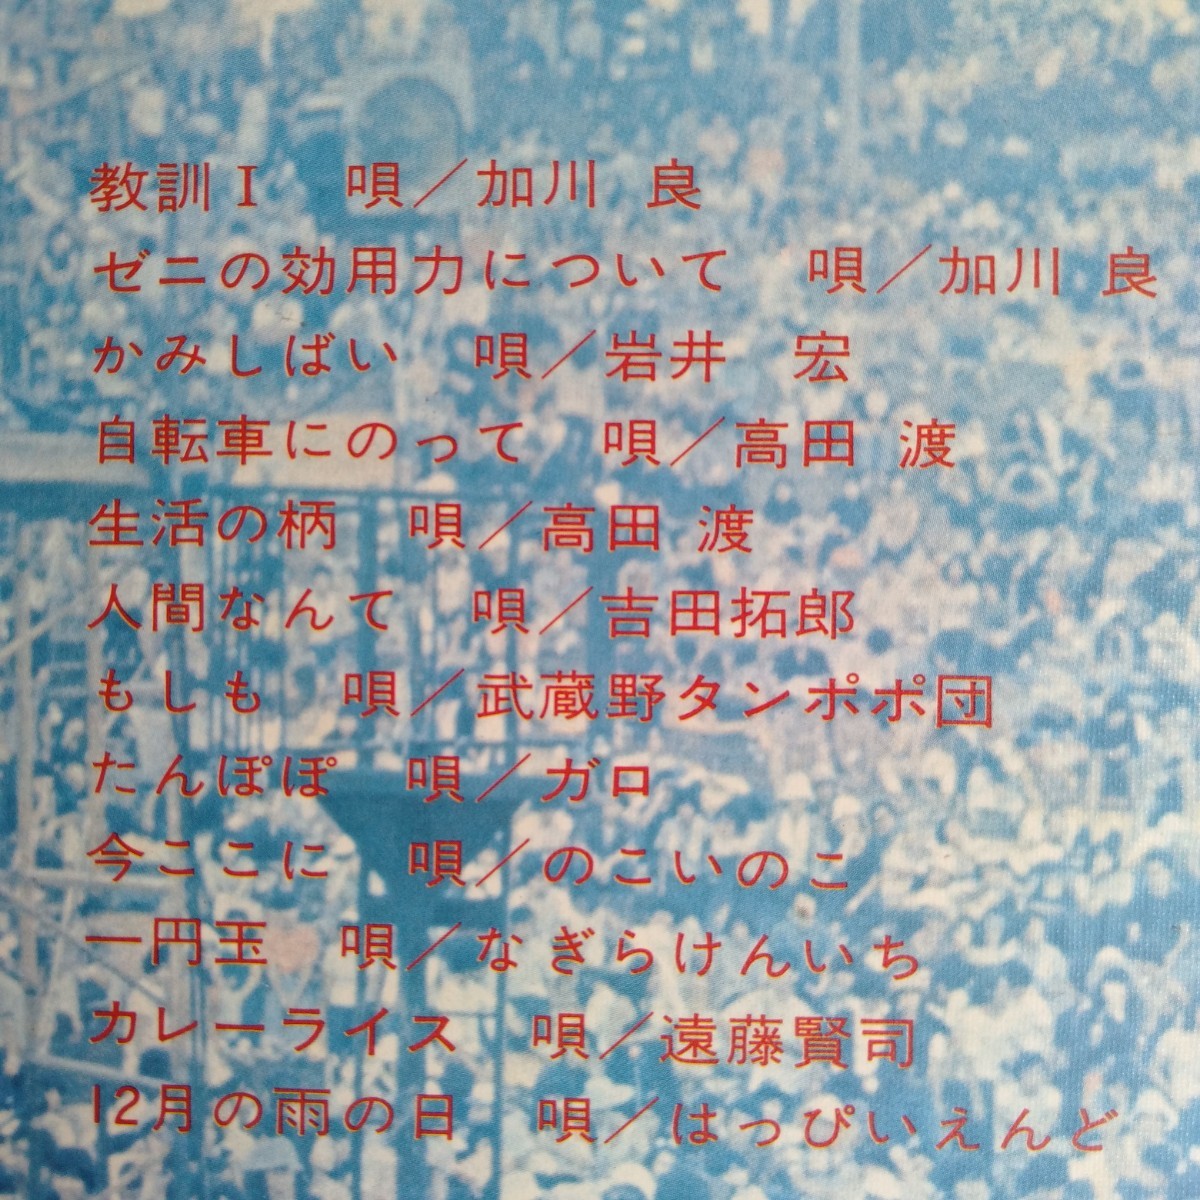 教訓I　唄／加川 良
ゼニの効用力について　唄／加川 良
かみしばい　唄／岩井　宏
自転車にのって　唄／高田 渡
生活の柄　唄／高田 渡
人間なんて　唄／吉田拓郎
もしも　唄／武蔵野タンポポ団
たんぽぽ　唄／ガロ
今ここに　唄／のこいのこ
一円玉　唄／なぎらけんいち
カレーライス　唄／遠藤賢司
12月の雨の日　唄／はっぴいえんど